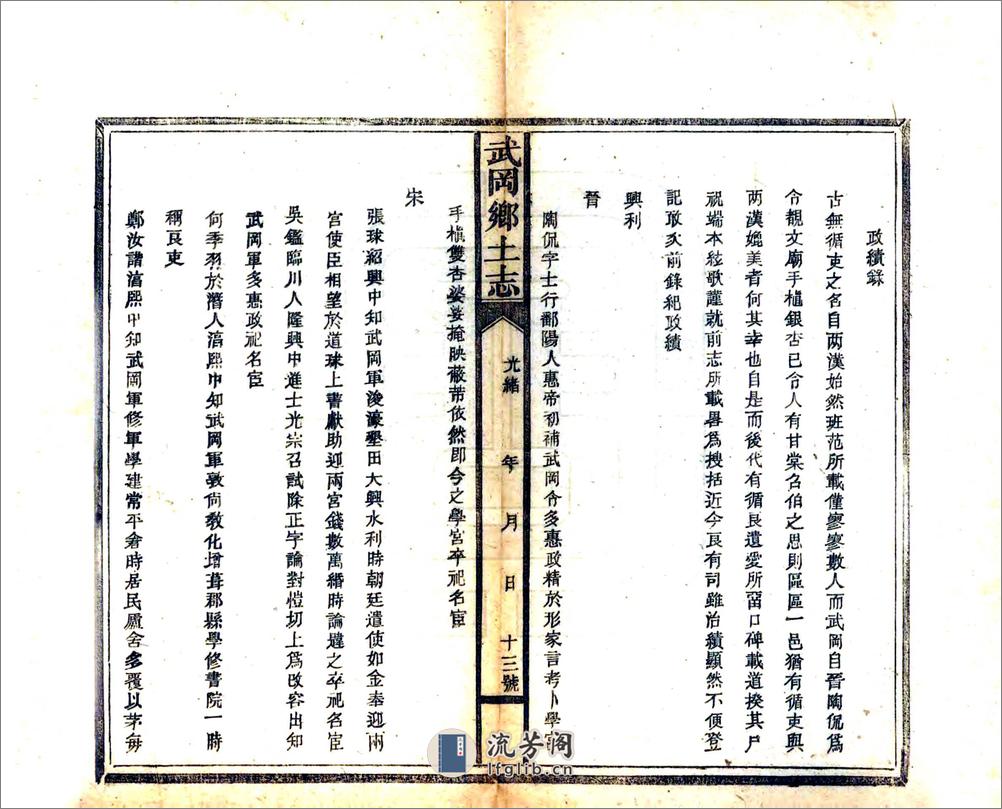 政績錄
古無循吏之名自兩漢始然班范所載僅寥寥數人而武岡自晉陶侃為
令覩文廟手植銀杏已令人有甘棠召伯之思則區區一邑猶有循吏與
兩漢媲美者何其幸也自是而後代有循良遺愛所留口碑載道揆其尸
祝端本絃歌謹就前志所載畧為搜括近今良有司雖治績顯然不便登
記敢次前錄紀政績
興利
晉
陶侃字士行鄱陽人惠帝初補武岡令多惠政精於形家言考卜學
手植雙杏婆娑掩映蔽芾依然即今之學宮卒祀名宦
宋
張球紹興中知武岡軍浚濠墾田大興水利時朝廷遣使如金奉迎兩
宮使臣相望於道球上書獻助迎兩宮錢數萬緡時論韙之卒祀名宦
吳鑑臨川人隆興中進士光宗召試除正字論對愷切上為改容出知
武岡軍多惠政祀名宦
何季羽於潛人淳熙中知武岡軍敦尚教化增葺郡縣學修書院一時
稱良吏
鄭汝諧淳熙中知武岡軍修軍學建常平倉時居民廬舍多覆以茅每
武岡鄉土志
光緒 年 月 日 十三號
流芳閣
lfglib.cn